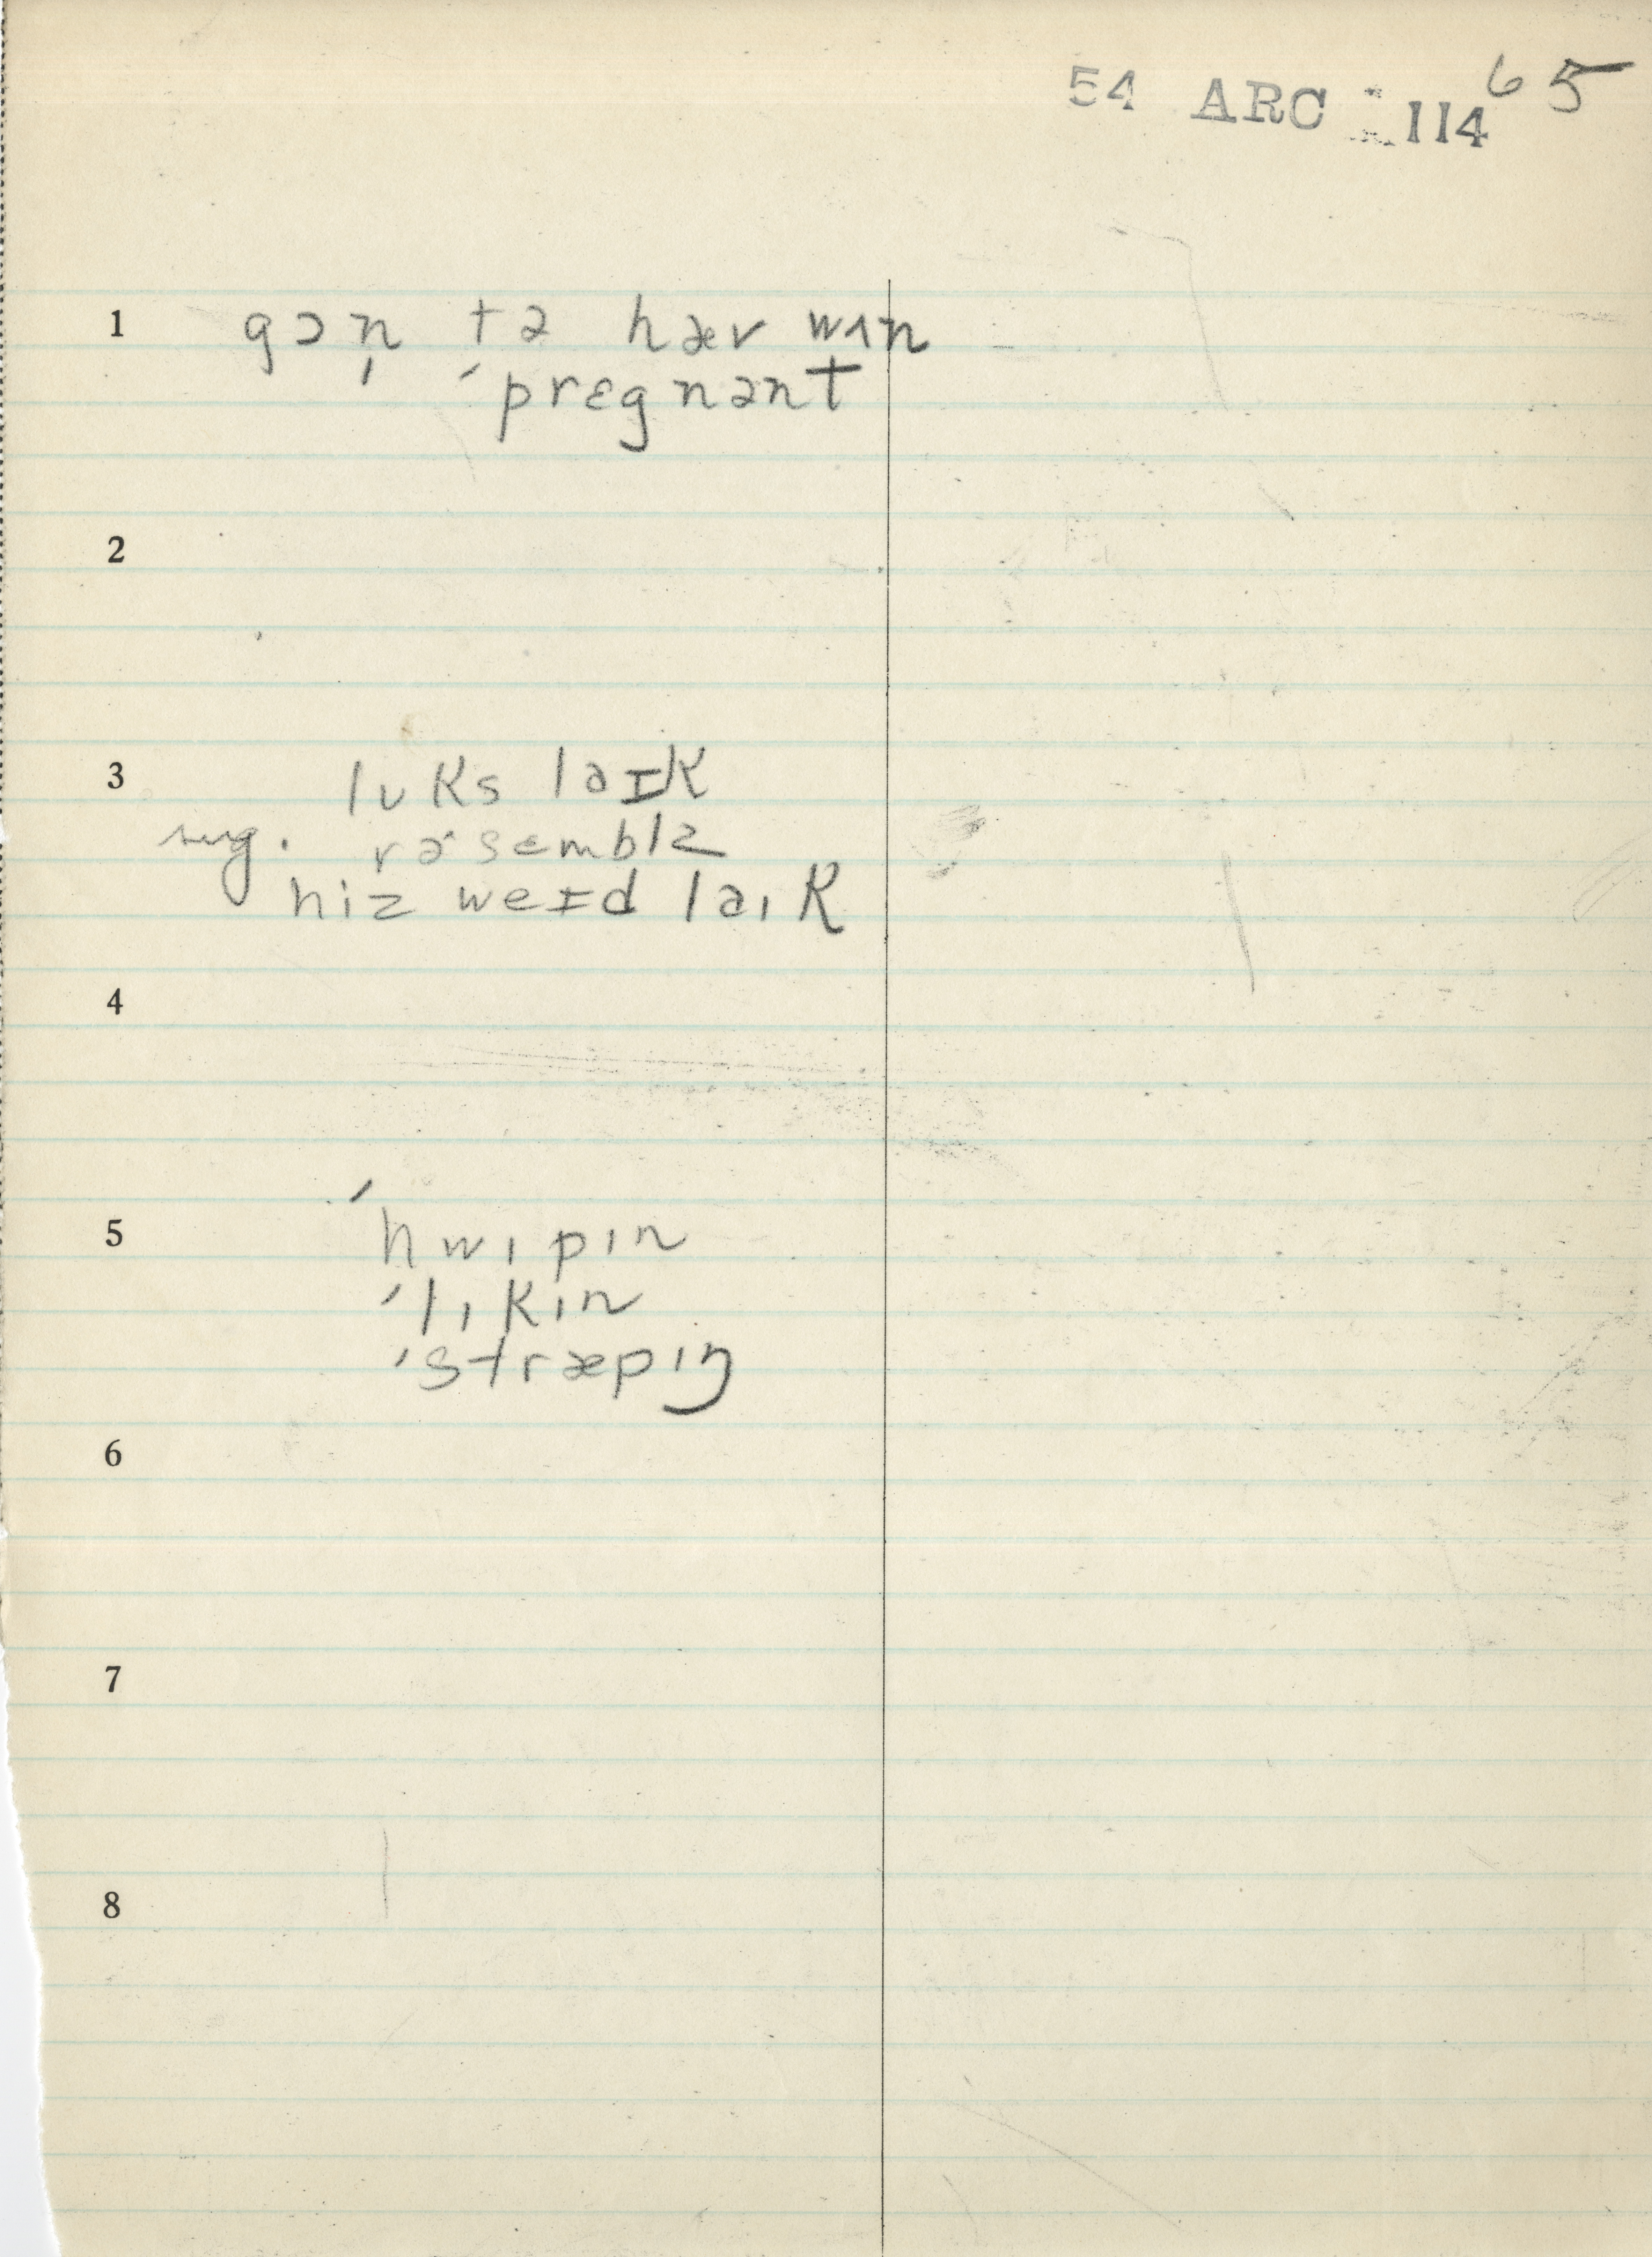 54 ARC 114 65
1 gɔn̩ tə hæv wʌn
ˈprɛgnənt
2
3 lʊks laɪk
sug. rəˈsɛmblz
hiz weɪd laɪk
4
5 ˈhwɪpɪn
ˈlɪkɪn
ˈstræpɪŋ
6
7
8